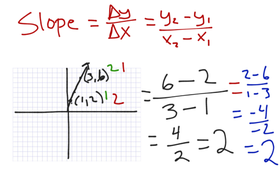 Slope = Δy/Δx = y₂ - y₁/x₂ - x₁
(3,6) 2 1
(1,2) 1 2
= 6 - 2/3 - 1
= 4/2 = 2
= 2-6/1-3
= -4/-2
= 2